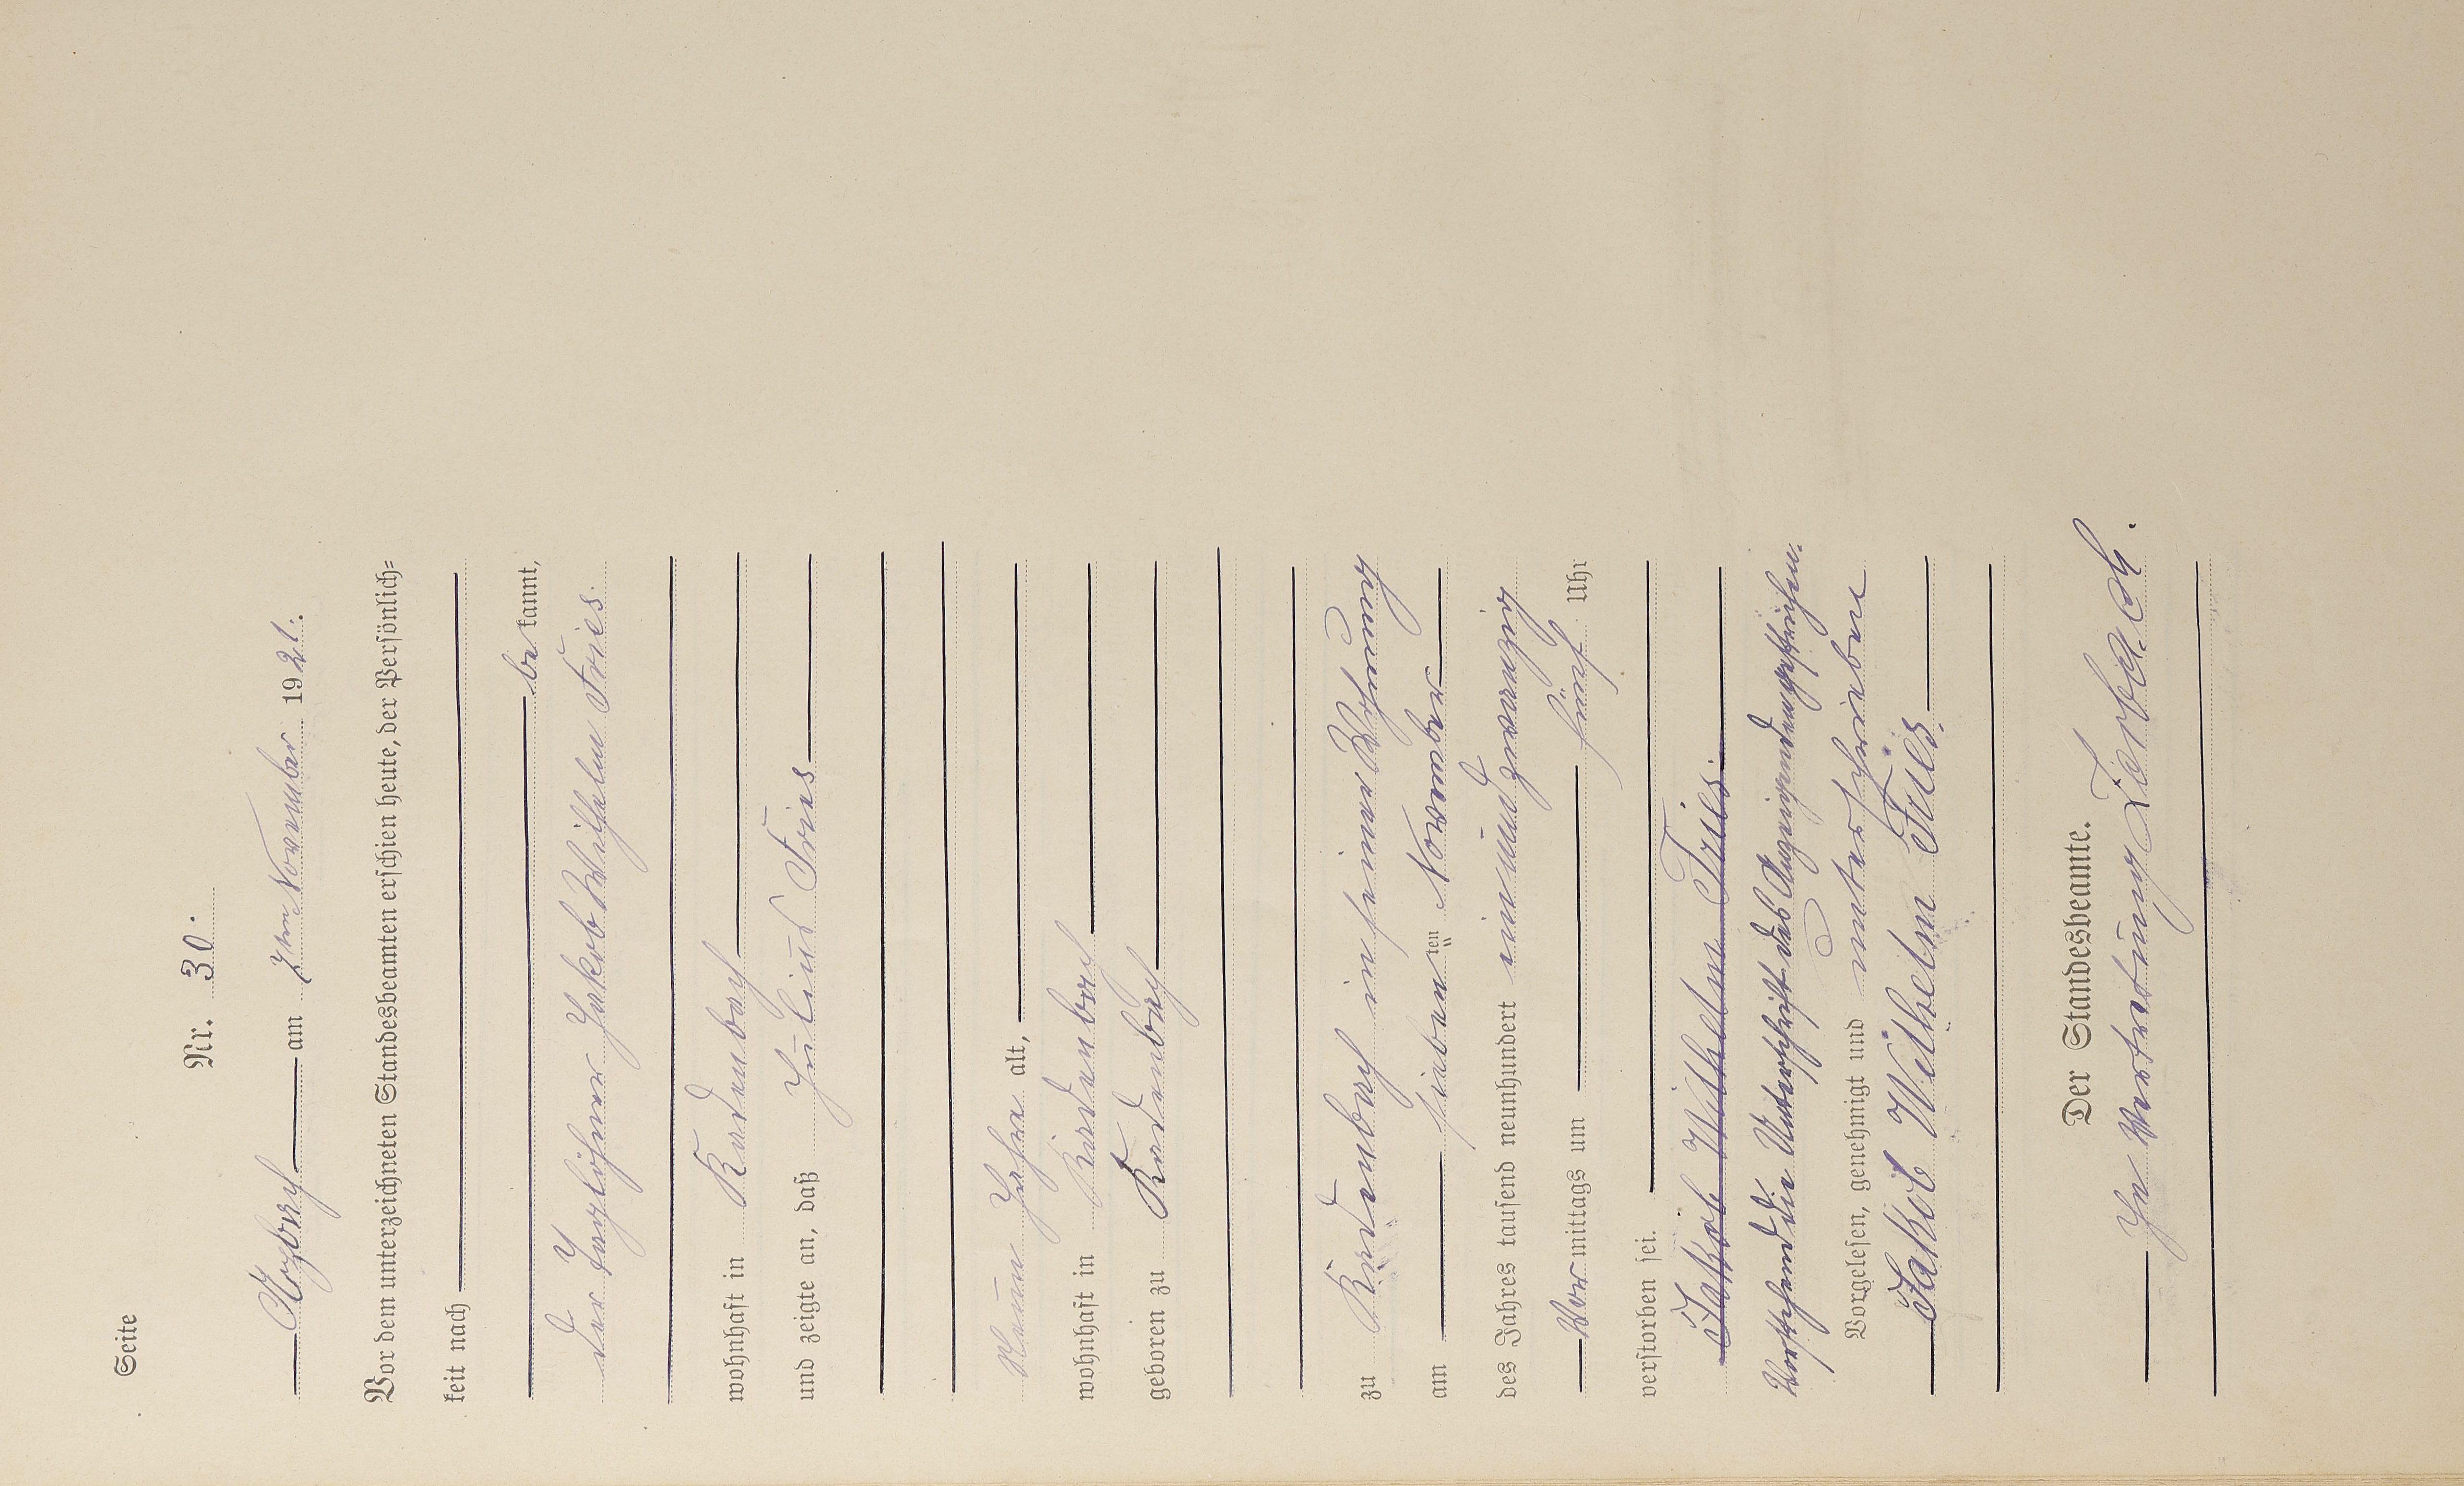 Seite
Nr. 30.
Rozbach am 7ten November 1921.
Vor dem unterzeichneten Standesbeamten erschien heute, der Persönlich-
keit nach
bekannt,
der Taglöhner Jakob Wilhelm Fries.
wohnhaft in Kudenbach
und zeigte an, daß Julius Fries
neun Jahre alt,
wohnhaft in Kudenbach
geboren zu Kudenbach
zu Kudenbach in seiner Wohnung
am siebenten November
des Jahres tausend neunhundert einundzwanzig
Vor mittags um fünf Uhr
verstorben sei.
Jakob Wilhelm Fries.
Vorstehend die Unterschrift des Anzeigenden gestrichen.
Vorgelesen, genehmigt und unterschrieben
Jakob Wilhelm Fries
Der Standesbeamte.
In Vertretung Zerbach.